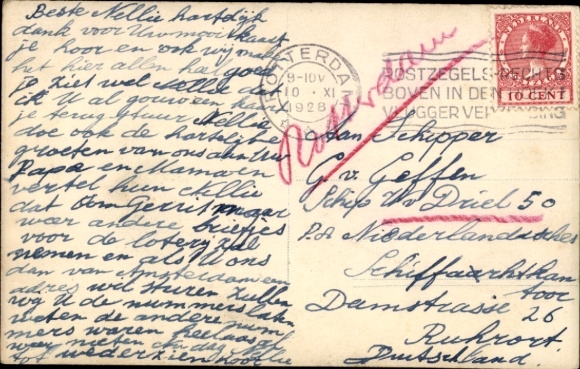 Beste Nellie hartelijk
dank voor Uw mooi kaart
je hoor en ook wij
het hier allen heel goed
Je ziet wel Nellie dat
ik U al gouw een kaar
je terug stuur Nellie
doe ook de hartelijke
groeten van ons aan Uw
Papa en Mama en
vertel hun Nellie
dat Oom Gerrit maar
voor andere briefjes
voor de lotery zal
nemen en als U ons
dan van Amsterdam een
adres wil sturen zullen
wy U de nummers laten
weten de andere num
mers waren helaas
niet en dag Nellie
tot wederziens hoor
AMSTERDAM
9-10V
10 XI
1928
POSTZEGELS RECHTS
BOVEN IN DEN HOEK
VLUGGER VERZENDING
NEDERLAND
10 CENT
Rotterdam
Aan Schipper
G. v. Geffen
Schip Uv Driel 50
P.a Niederlandsches
Schiffaarhtskan
toor
Damstrasse 26
Ruhrort.
Duitschland.